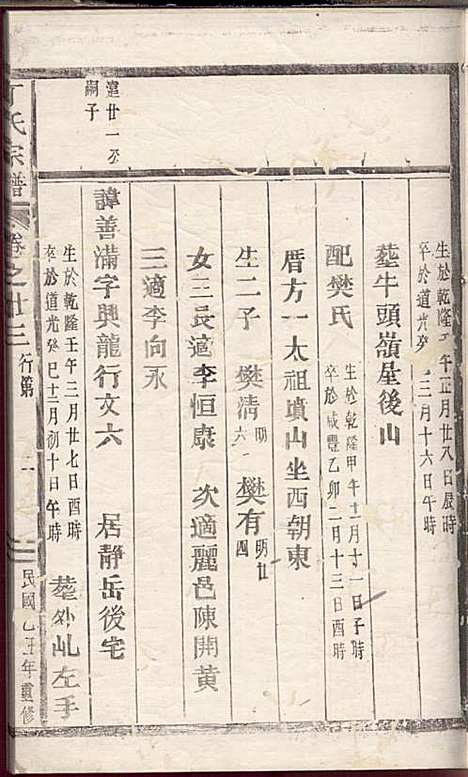 生於乾隆 午正月廿八日辰時
卒於道光癸巳三月十六日午時
塟牛頭嶺屋後山
配樊氏
生於乾隆甲午十二月十一日子時
卒於咸豐乙卯二月十三日酉時
厝方一太祖墳山坐西朝東
生二子 樊清明六一 樊有明廿四
女三長適李恒康 次適麗邑陳開黃
三適李向永
諱善滿字興龍行文六 居靜岳後宅
遠廿一公
嗣子
生於乾隆壬午三月廿七日酉時
卒於道光癸巳十二月初十日午時
塟外乢左手
丁氏宗譜 卷之廿三 行第 民國乙丑年重修